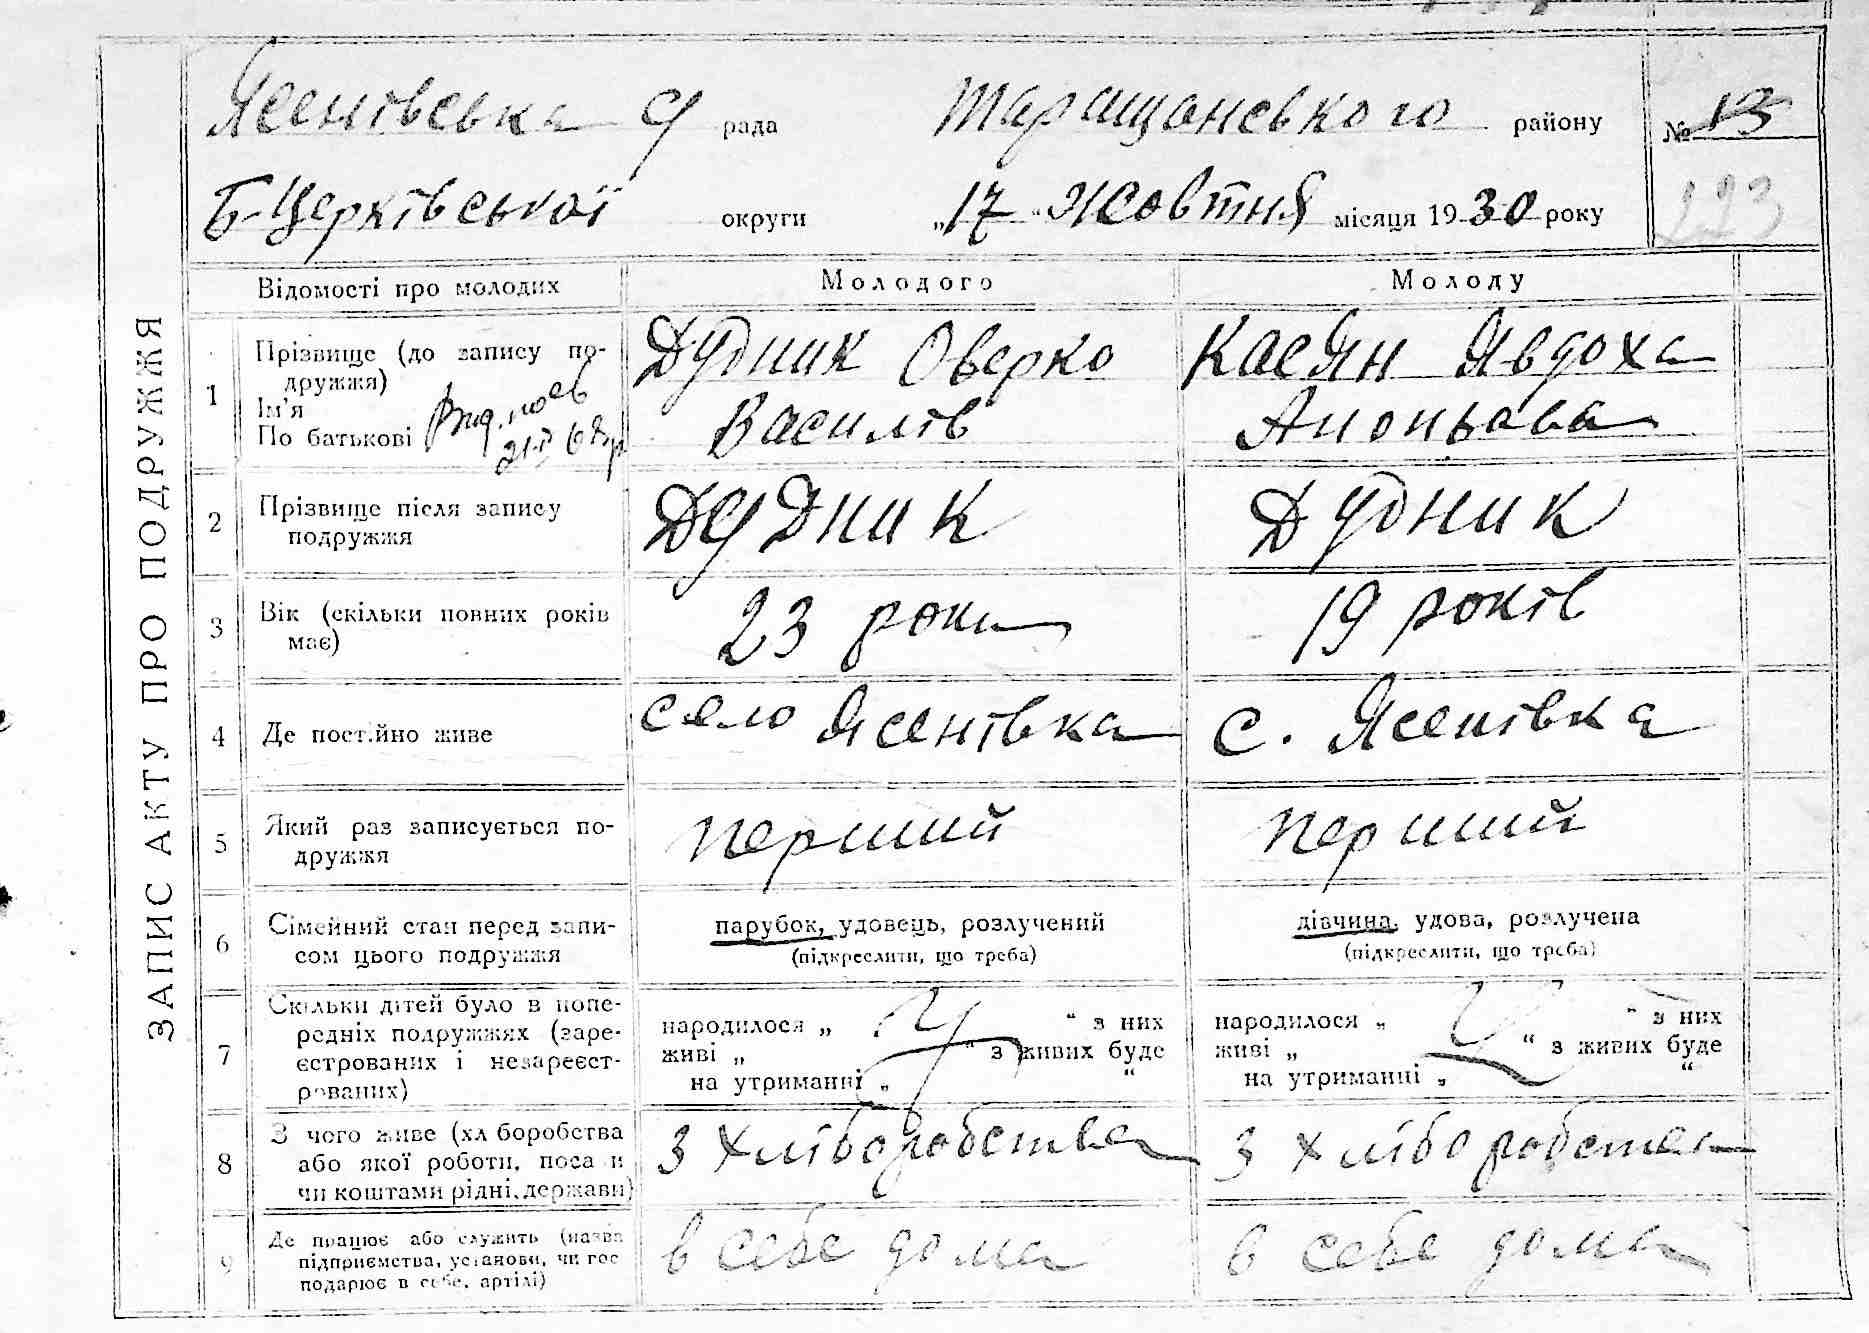 ЗАПИС АКТУ ПРО ПОДРУЖЖЯ
Ясенівська С рада Таращанського району № 13
Б-Церківської округи „17“ Жовтня місяця 1930 року 223
Відомості про молодих Молодого Молоду
1 Прізвище (до запису по- Дудник Оверко Касян Явдоха
дружжя)
Ім'я
По батькові Василів
2 Прізвище після запису Дудник Дудник
подружжя
3 Вік (скільки повних років 23 роки 19 років
має)
4 Де постійно живе село Ясенівка с. Ясенівка
5 Який раз записується по- перший перший
дружжя
6 Сімейний стан перед запи- парубок, удовець, розлучений дівчина, удова, розлучена
сом цього подружжя (підкреслити, що треба) (підкреслити, що треба)
7 Скільки дітей було в попе-
редніх подружжях (заре- народилося „ “ з них народилося „ “ з них
єстрованих і незареєст- живі „ “ з живих буде живі „ “ з живих буде
рованих) на утриманні „ “ на утриманні „ “
8 З чого живе (хліборобства З хліборобства З хліборобства
або якої роботи, посади
чи коштами рідні, держави)
9 Де працює або служить (назва в себе дома в себе дома
підприємства, установи, чи гос
подарює в себе, артілі)